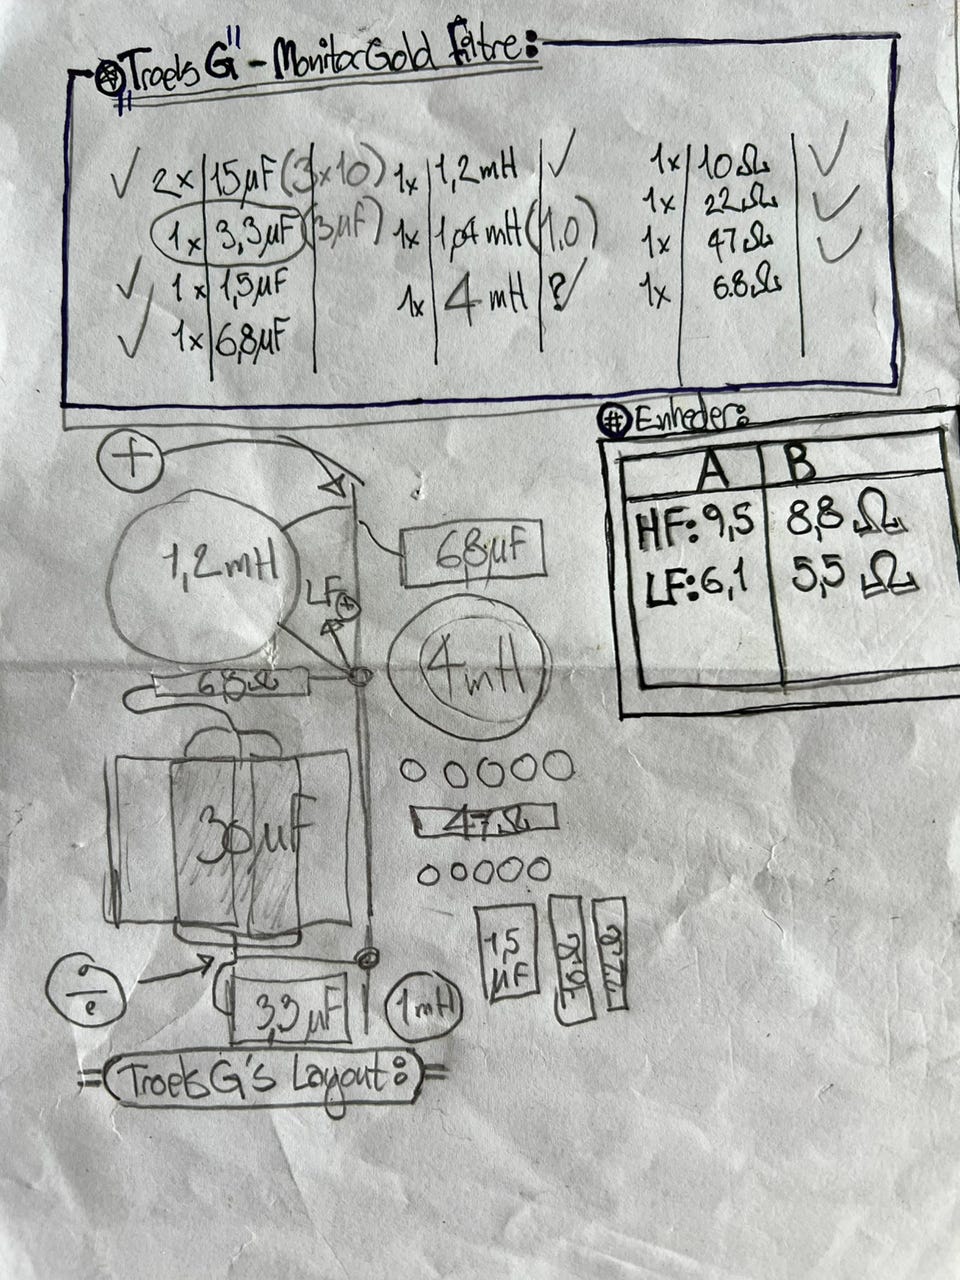 # Troels G" - Monitor Gold Filtre:
✓ 2x 15µF (3x10) 1x 1,2mH ✓ 1x 10Ω ✓
1x 3,3µF (3µF) 1x 1,04mH (1,0) 1x 22Ω ✓
✓ 1x 1,5µF 1x 4mH ? ✓ 1x 47Ω ✓
✓ 1x 6,8µF 1x 6.8Ω
# Enheder:
A B
HF: 9,5 8,8 Ω
LF: 6,1 5,5 Ω
+
1,2mH
68µF
LF +
4mH
6,8Ω
30µF
47Ω
1,5
µF
10Ω
22Ω
÷
3,3µF
1mH
= Troels G's Layout: =